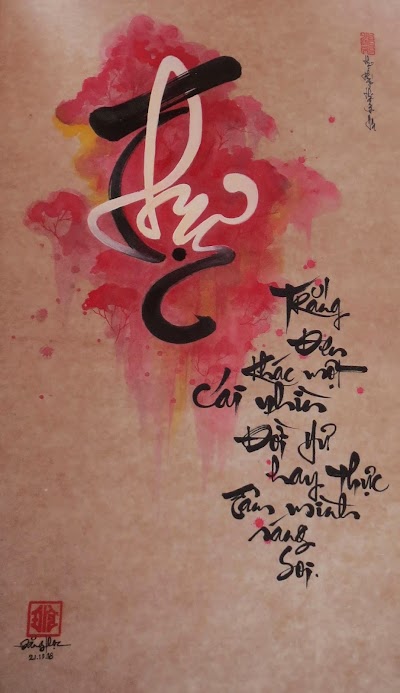 Thực
Trắng
Đen
khác một
cái nhìn
Đời hư
hay thực
Tâm mình
sáng
Soi.
Đăng Học